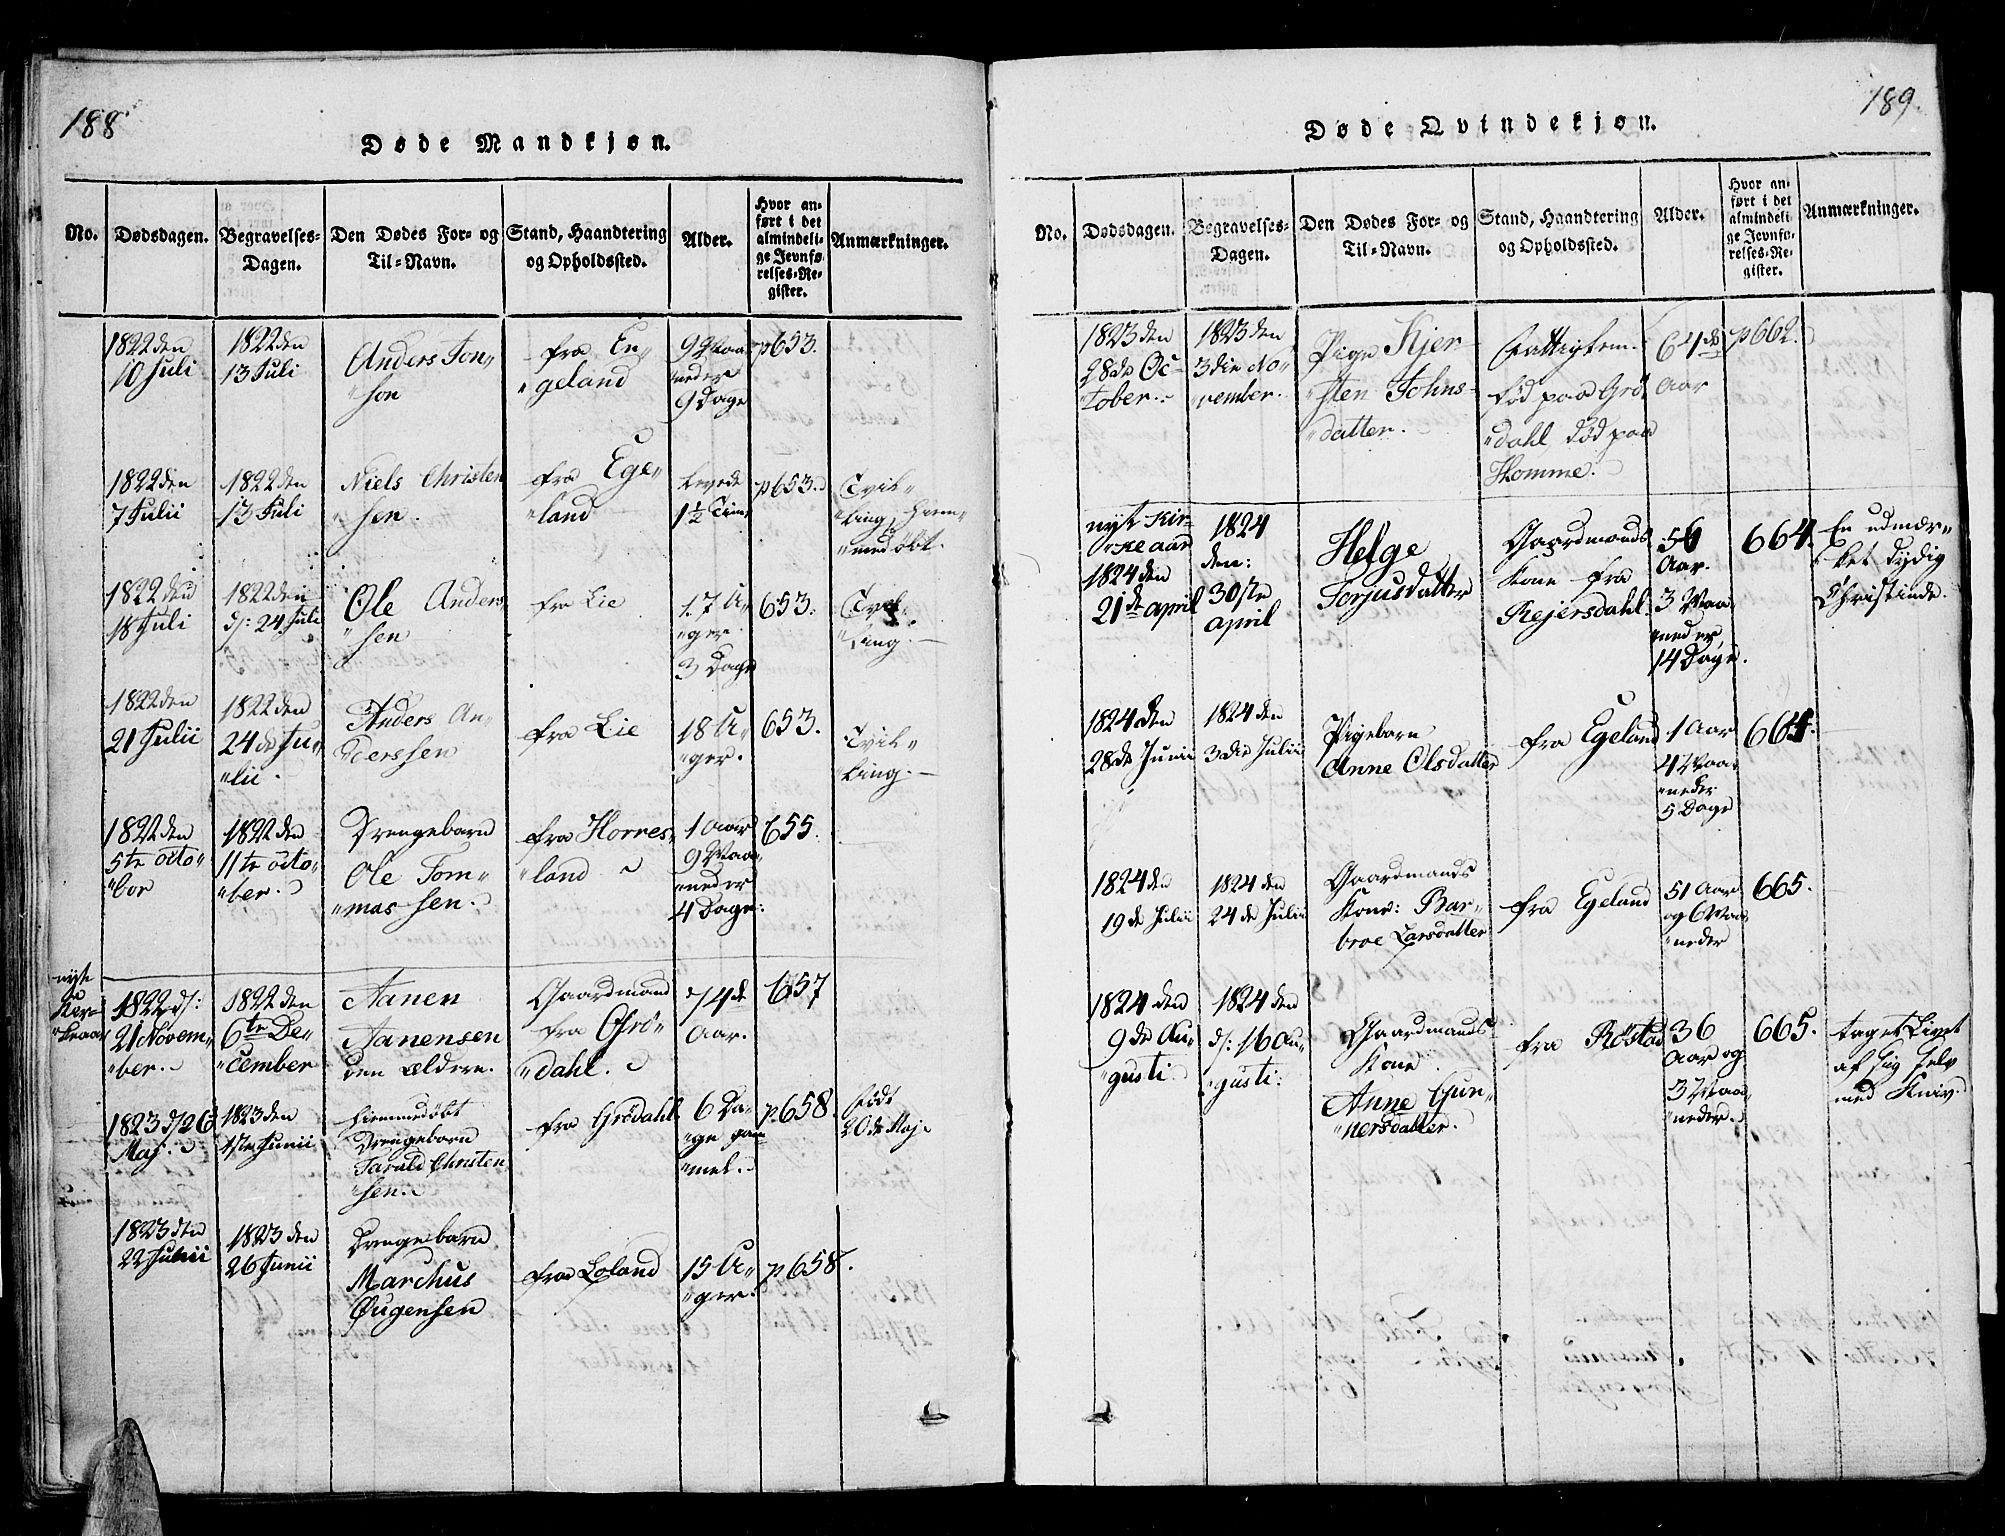 188
Døde Mandkjøn.
No.
Dødsdagen.
Begravelses-
Dagen.
Den Dødes For- og
Til-Navn.
Stand, Haandtering
og Opholdssted.
Alder.
Hvor an-
ført i det
almindeli-
ge Jevnfø-
relses-Re-
gister.
Anmærkninger.
1822 den
10 Juli
1822 den
13 Juli
Anders Jon„
„sen
fra En„
„geland
9 Maa
„neder
9 Dage
p 653.
1822 den
7 Julii
1822 den
13 Juli
Niels Christen
„sen.
fra Ege„
„land
Levede
1½ Time
p 653.
Tvil„
„ling, hiem„
„medøbt.
1822 den
18 Juli
1822 den
d: 24 Juli
Ole Anders
„sen
fra Lie
17 U„
„ger
3 Dage
653.
Tvil„
„ling.
1822 den
21 Julii
1822 den
24 de Ju„
„lii.
Anders An„
„derssen
fra Lie
18 U„
„ger.
653.
Tvil„
„ling.
1822 den
5te octo„
„ber
1822 den
11te octo„
„ber.
Drengebarn
Ole Tom„
„massen.
fra Horres„
„land
1 Aar
9 Maa„
„neder
4 Dage.
655.
nyt
Kir„
„keaar
1822 d:
21 Novem„
„ber.
1822 den
6te De„
„cember
Aanen
Aanensen
den Ældere.
Gaardmand
fra Grö„
„dahl.
74 de
Aar.
657
1823 d 26
Maj.
1823 den
1ste Junii
hiemmedøbt
Drengebarn
Tarald Christen
„sen.
fra Grödahl
6 Da„
„ge gam
„mel.
p 658.
født
20 de Maj.
1823 den
22 Junii
1823 den
26 Junii
Drengebarn
Marchus
Øugensen
fra Loland
15 U„
„ger.
p 658.
189.
Døde Qvindekjøn.
No.
Dødsdagen.
Begravelses-
Dagen.
Den Dødes For- og
Til-Navn.
Stand, Haandtering
og Opholdssted.
Alder.
Hvor an-
ført i det
almindeli-
ge Jevnfø-
relses-Re-
gister.
Anmærkninger.
1823 den
28 de Oc„
„tober.
1823 den
3 die No„
„vember.
Pige Kjer„
„sten Johns„
„datter.
Fattiglem.
fød paa Grö„
„dahl, død paa
Homme.
61 de
Aar
p 662.
nyt Kir„
„keaar
1824 den
21 de april
1824
den:
30 ste
april
Helge
Torjusdatter
Gaardmands
Kone fra
Rejersdahl
56
Aar.
3 Maa„
„neder,
14 Dage.
664.
En udmær„
„ket dydig
Christinde.
1824 den
28 de Junii
1824 den
3 die Julii
Pigebarn
Anne Olsdatter
fra Egeland
1 Aar
4 Maa„
„neder
5 Dage
664.
1824 den
19 de Julii
1824 den
24 de Julii
Gaardmands
Kone: Bar„
broe Larsdatter
fra Egeland
51 Aar
og 6 Maa„
„neder
665.
1824 den
9 de Au„
„gusti
1824 den
d: 16 Au„
„gusti:
Gaardmands
Kone
Anne Gun„
„nersdatter.
fra Röstad
36
Aar og
3 Maa„
„neder.
665.
taget Livet
af sig selv
med Kniv.